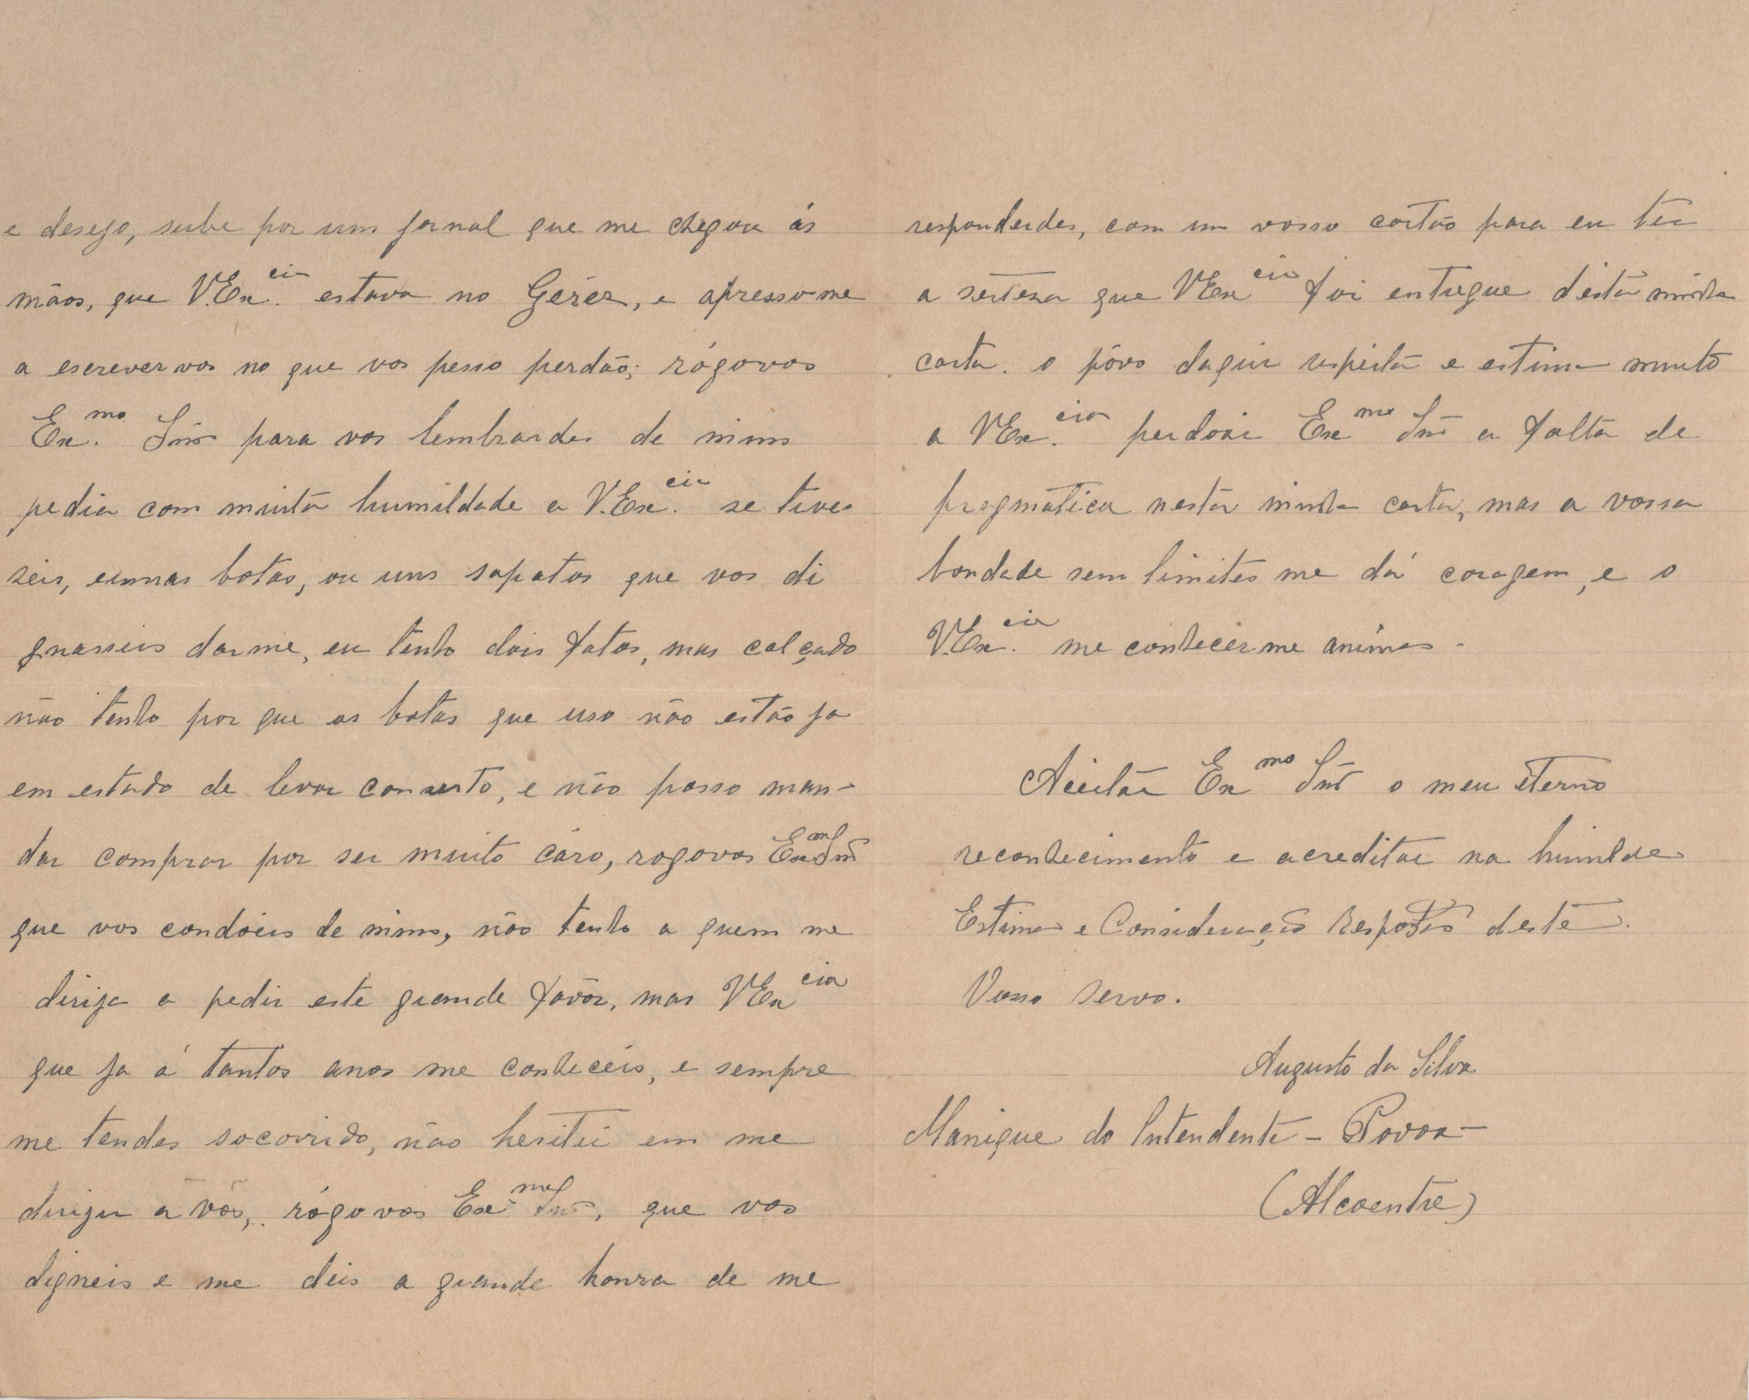 e desejo, sube por um jornal que me chegou ás
mãos, que V.Ex.cia estava no Gérez, e apressome
a escrever vos no que vos pesso perdão; rógovos
Ex.mo Snr para vos lembrardes de mim
pedia com muita humildade a V.Ex.cia se tives
seis, eumas botas, ou uns sapatos que vos di
gnasseis darme, eu tenho dois fatos, mas calçado
não tenho por que as botas que uso não estão ja
em estado de levar conserto, e não posso man-
dar comprar por ser muito cáro, rogovos Exmo Snr
que vos condoeis de mim, não tenho a quem me
dirija a pedir este grande favôr, mas VExcia
que ja á tantos anos me conheceis, e sempre
me tendes socorrido, não hesitei em me
dirigir a vós, rógo vos Exmo Snr, que vos
digneis e me deis a grande honra de me
responderdes, com um vosso cartão para eu ter
a serteza que VExcia foi entregue désta minha
carta. o pôvo daqui respeita e estima muito
a VEx.cia perdoai Exmo Snr a falta de
pragmática nesta minha carta, mas a vossa
bondade sem limites me dá coragem, e o
V.Ex.cia me conhecêr me anima -
Aceitai Exmo Snr o meu eterno
reconhecimento e acreditai na humilde
Estima e Consideração Respeito deste
Vosso servo.
Augusto da Silva
Manique do Intendente - Povoa -
(Alcoentre)